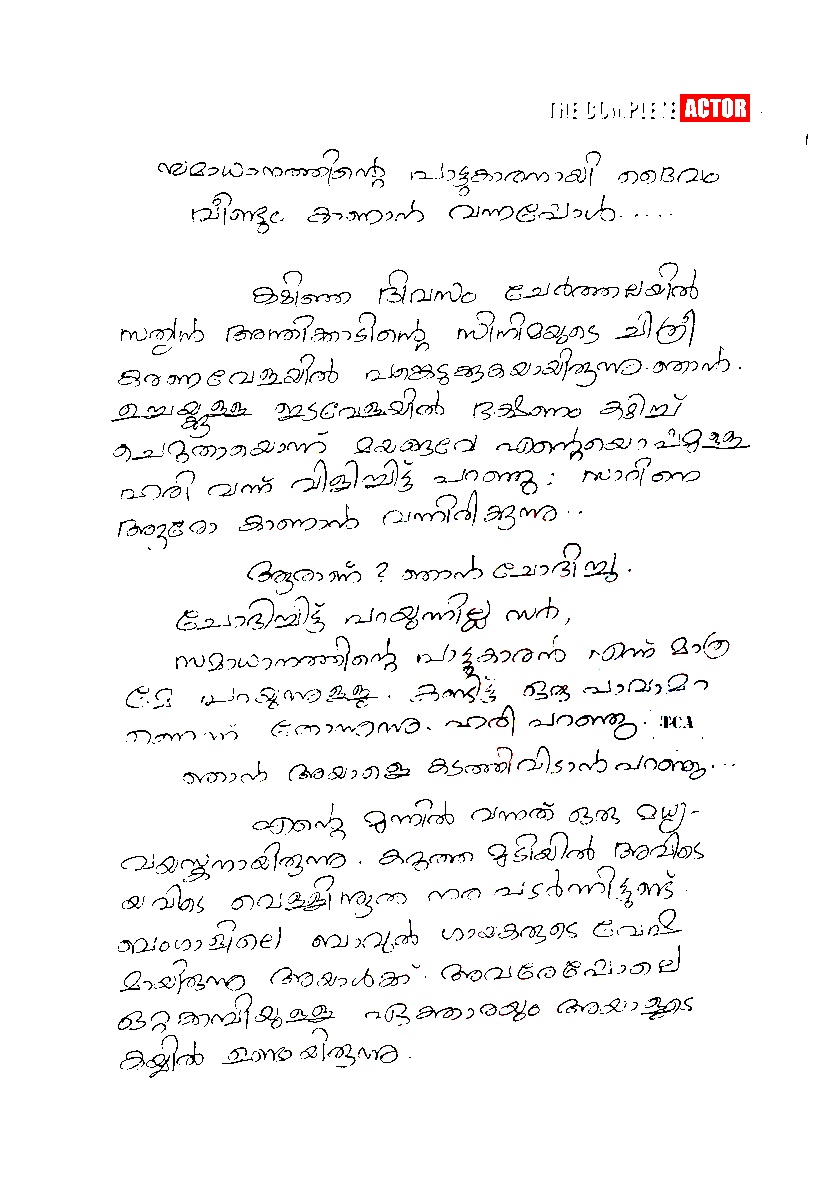 THE COMPLETE ACTOR
സമാധാനത്തിന്റെ പാട്ടുകാരനായി ദൈവം
വീണ്ടും കാണാൻ വന്നപ്പോൾ.....
കഴിഞ്ഞ ദിവസം ചേർത്തലയിൽ
സത്യൻ അന്തിക്കാടിന്റെ സിനിമയുടെ ചിത്രീ
കരണവേളയിൽ പങ്കെടുക്കുകയായിരുന്നു ഞാൻ.
ഉച്ചയ്ക്കുള്ള ഇടവേളയിൽ ഭക്ഷണം കഴിച്ച്
ചെറുതായൊന്ന് മയങ്ങുവേ എന്റെയൊപ്പമുള്ള
ഹരി വന്ന് വിളിച്ചിട്ട് പറഞ്ഞു: സാറിനെ
ആരോ കാണാൻ വന്നിരിക്കുന്നു..
ആരാണ്? ഞാൻ ചോദിച്ചു.
ചോദിച്ചിട്ട് പറയുന്നില്ല സർ,
സമാധാനത്തിന്റെ പാട്ടുകാരൻ എന്ന് മാത്ര
മേ പറയുന്നുള്ളൂ. കണ്ടിട്ട് ഒരു പാവാമാ
ണെന്ന് തോന്നുന്നു. ഹരി പറഞ്ഞു. TCA
ഞാൻ അയാളെ കടത്തിവിടാൻ പറഞ്ഞു...
എന്റെ മുന്നിൽ വന്നത് ഒരു മധ്യ-
വയസ്കനായിരുന്നു. കറുത്ത മുടിയിൽ അവിടെ
യവിടെ വെള്ളിനൂൽ നര പടർന്നിട്ടുണ്ട്.
ബംഗാളിലെ ബാവുൽ ഗായകരുടെ വേഷ
മായിരുന്നു അയാൾക്ക്. അവരേപ്പോലെ
ഒറ്റക്കമ്പിയുള്ള ഏക്താരയും അയാളുടെ
കയ്യിൽ ഉണ്ടായിരുന്നു.